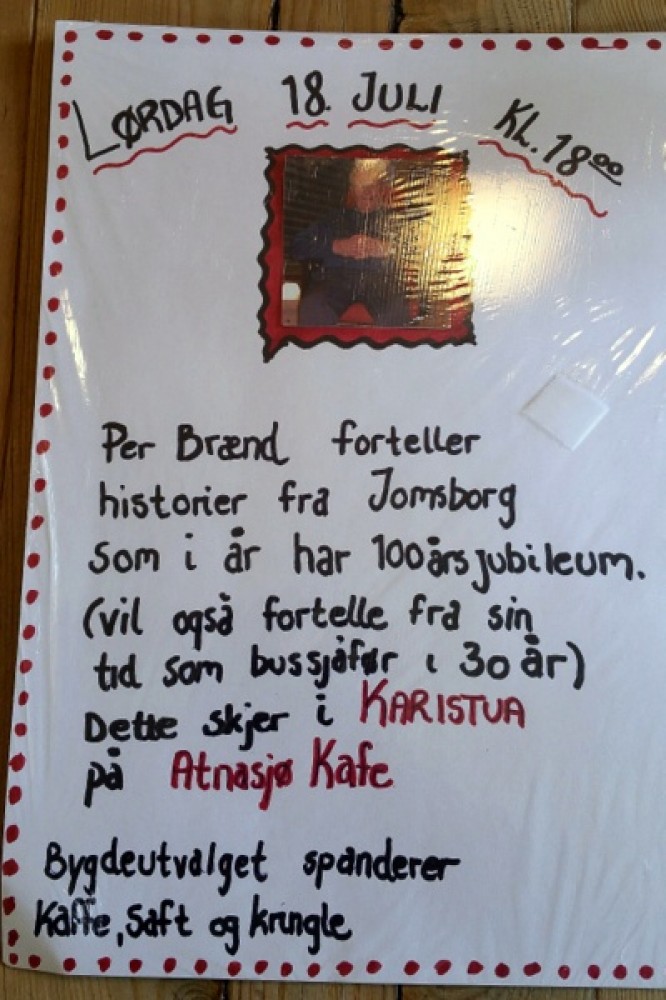 LØRDAG 18. JULI KL. 18⁰⁰
Per Brænd forteller
historier fra Jomsborg
som i år har 100årsjubileum.
(vil også fortelle fra sin
tid som bussjåfør i 30 år)
Dette skjer i KARISTUA
på Atnasjø Kafe
Bygdeutvalget spanderer
Kaffe, Saft og kringle